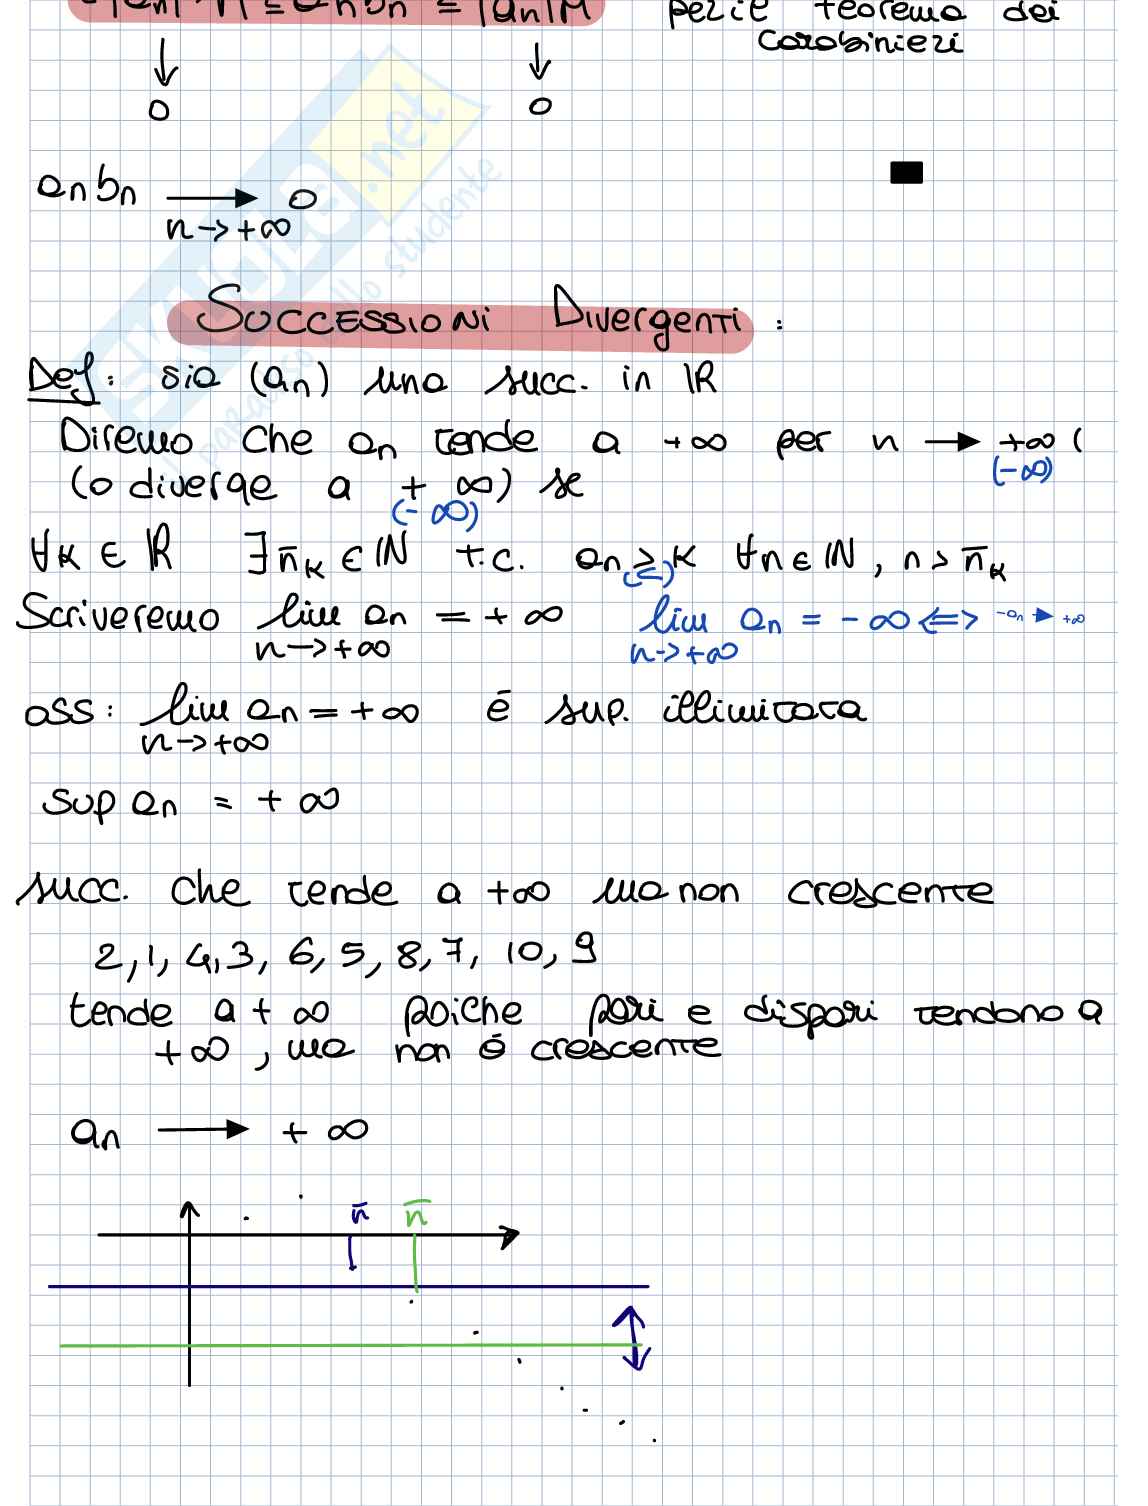 -|an|·M ≤ anbn ≤ |an|M per il teorema dei
carabinieri
↓ ↓
0 0
anbn → 0
n→+∞
SUCCESSIONI Divergenti :
Def: sia (an) una succ. in ℝ
Diremo che an tende a +∞ per n → +∞ (
(-∞)
(o diverge a +∞) se
(-∞)
∀k ∈ ℝ ∃ n̄k ∈ ℕ t.c. an ≥ k ∀n ∈ ℕ, n > n̄k
(≤)
Scriveremo lim an = +∞ lim an = -∞ ⇔ -an → +∞
n→+∞ n→+∞
oss: lim an = +∞ é sup. illimitata
n→+∞
sup an = +∞
succ. che tende a +∞ ma non crescente
2,1,4,3,6,5,8,7,10,9
tende a +∞ poiche pari e dispari tendono a
+∞, ma non é crescente
an → +∞
n̄ n̄
SKUOLA.net
il paradiso dello studente